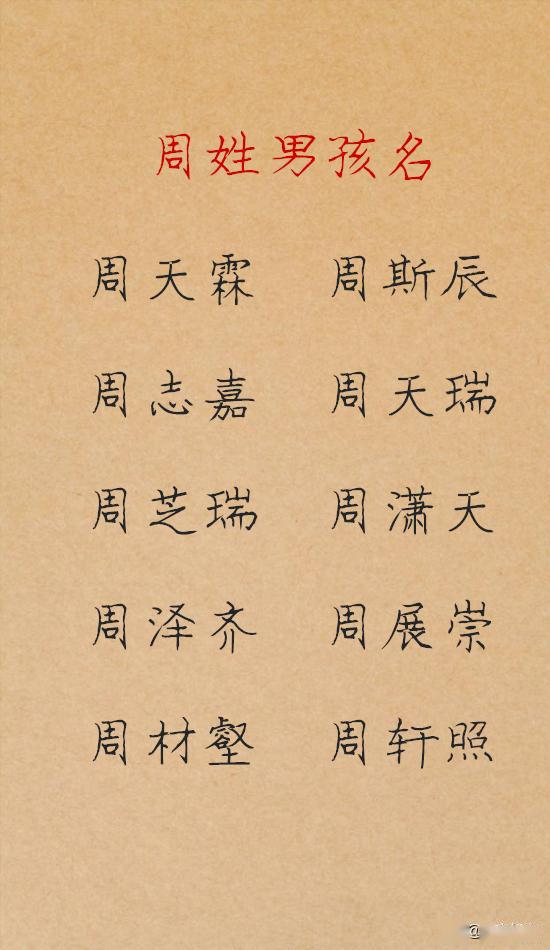 周姓男孩名
周天霖 周斯辰
周志嘉 周天瑞
周芝瑞 周潇天
周泽齐 周展崇
周材壑 周轩照
@